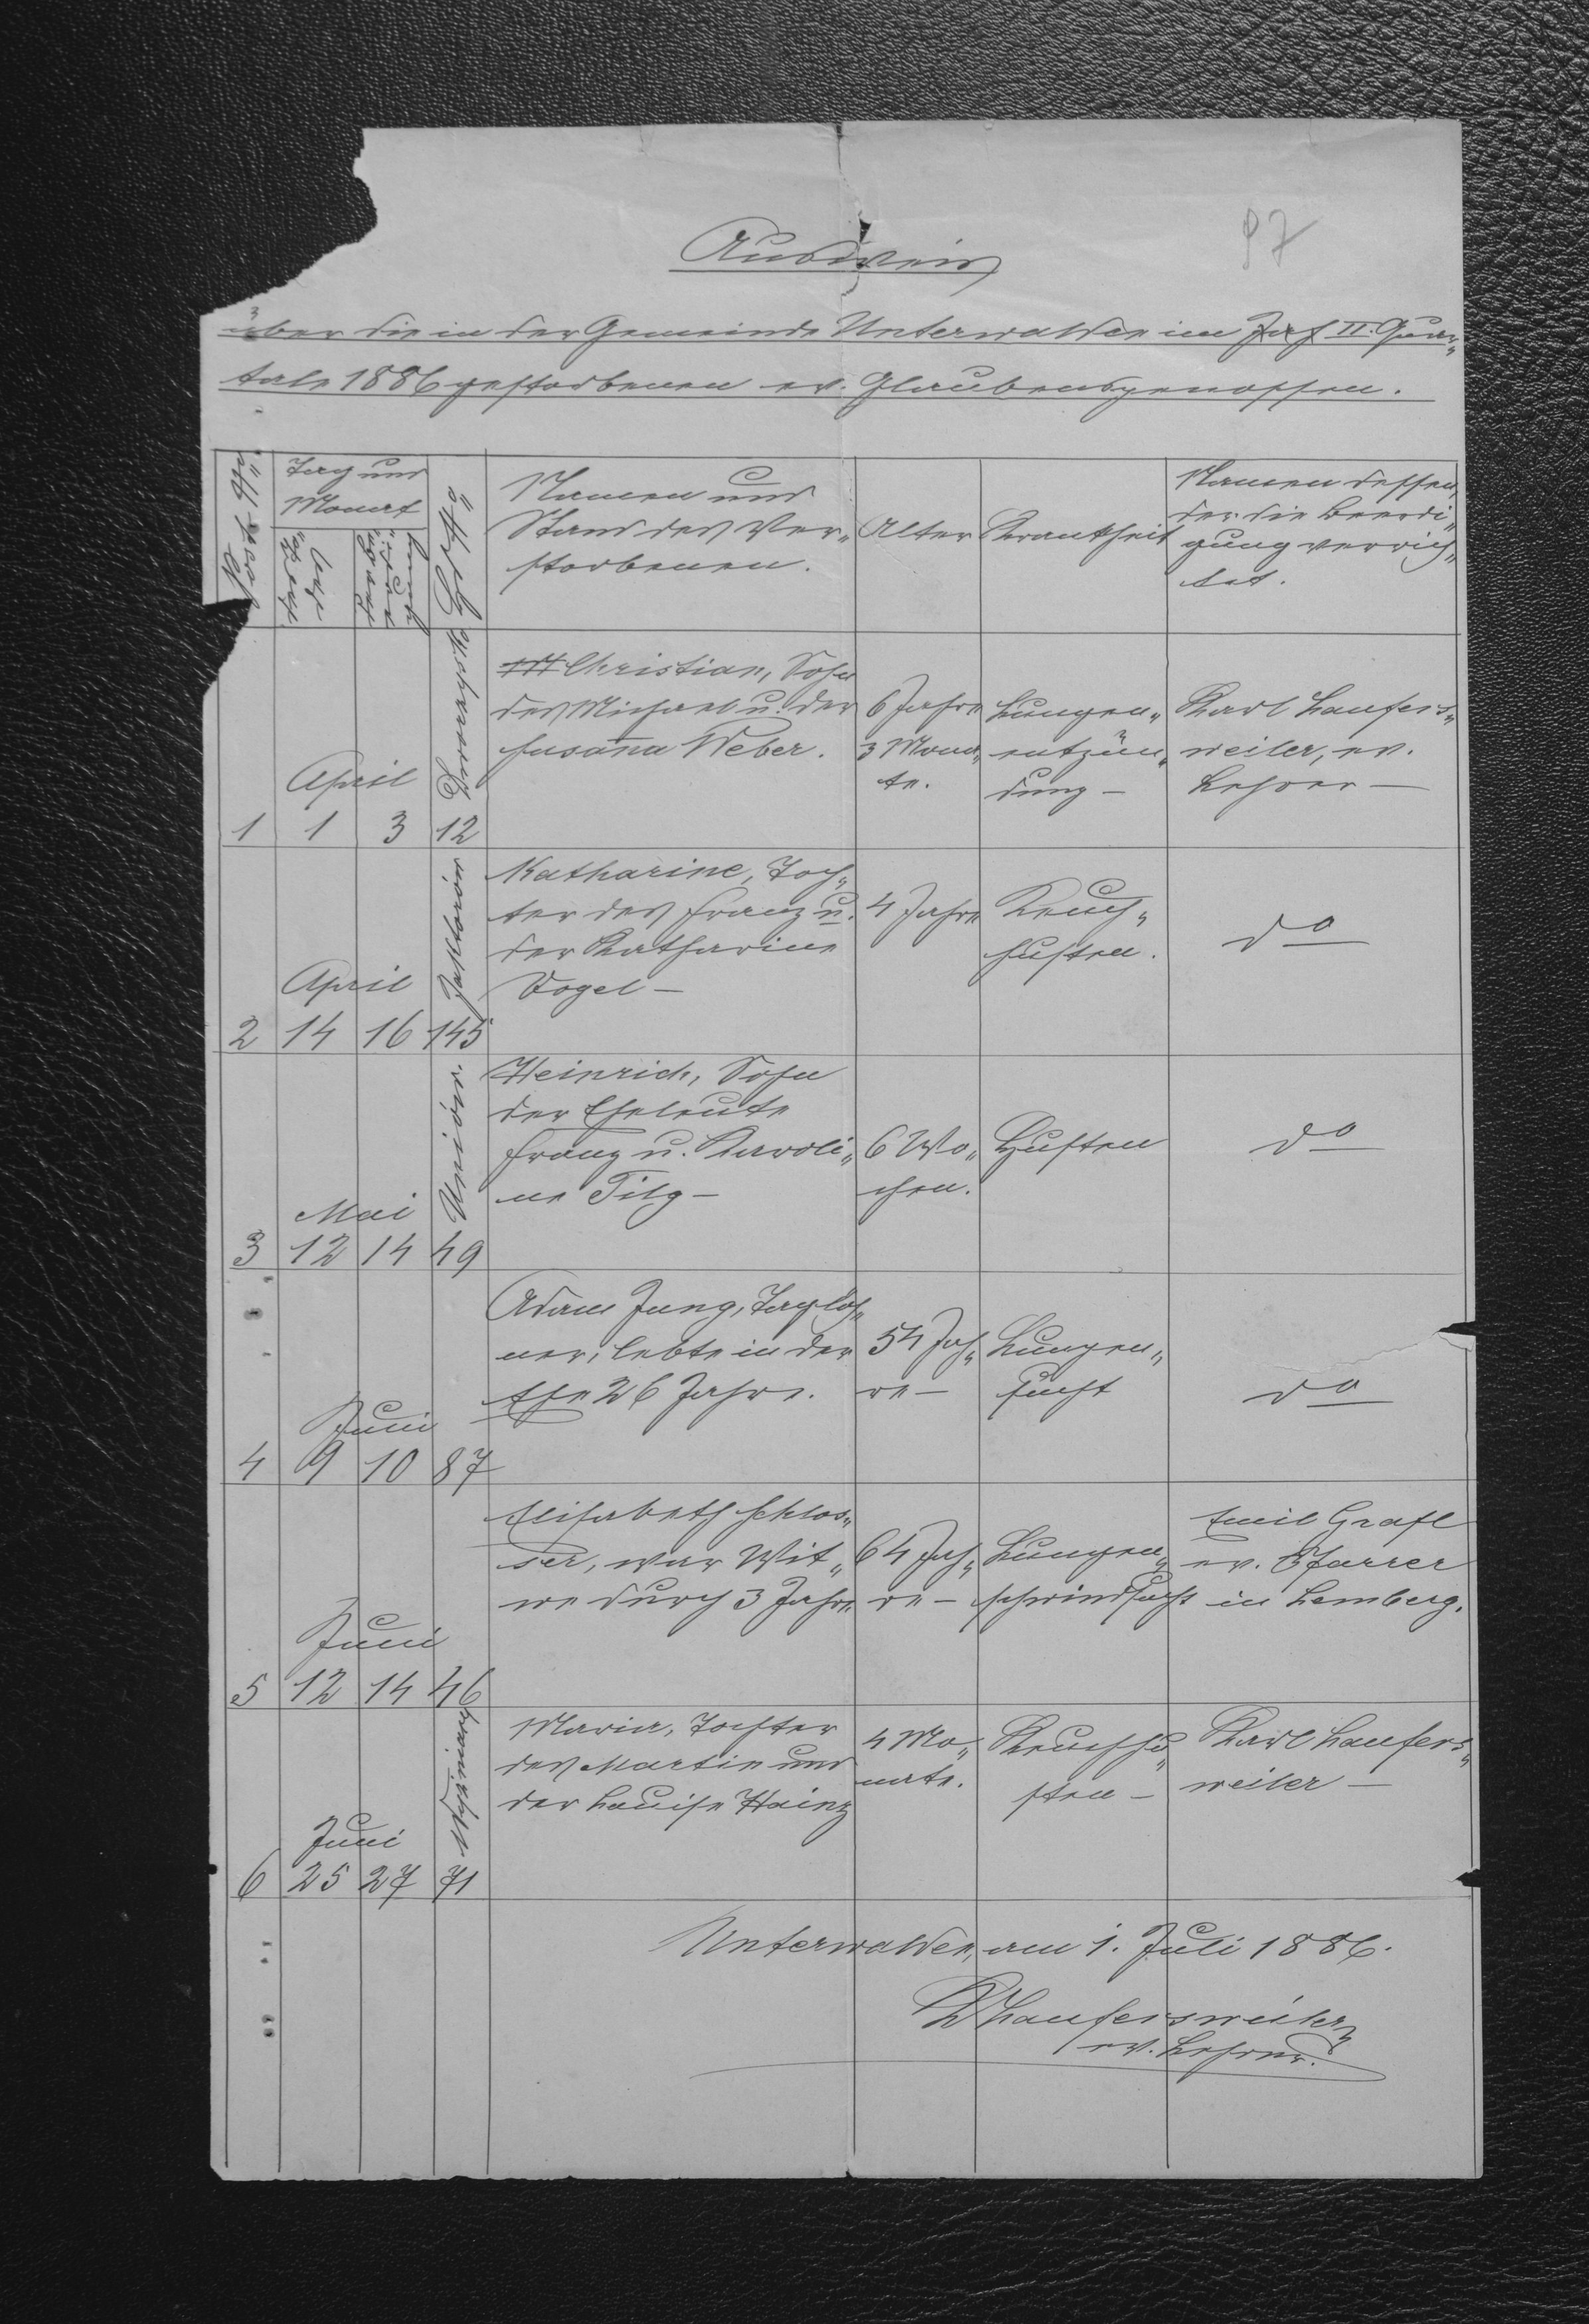 97
Ausweis
über die in der Gemeinde Unterwalden im Jah II. Quar„
tale 1886 gestorbenen ev. Glaubensgenossen.
Post No
Tag und
Monat
des
Todes
der
Beerdi„
gung
Hs. No
Namen und
Stand des Ver„
storbenen.
Alter
Krankheit
Namen dessen,
der die Beerdi„
gung verrich„
tet.
1
April
1 3
12
Christian, Sohn
des Michael u. der
Susanna Weber.
6 Jahre
3 Mona„
te.
Lungen„
entzün„
dung –
Karl Laufers„
weiler, ev.
Lehrer –
2
April
14 16
Zaktorów
145
Katharine, Toch„
ter des Franz u.
der Katharine
Vogel –
4 Jahre
Keuch„
husten.
do
3
Mai
12 14
Uniów.
49
Heinrich, Sohn
der Eheleute
Franz u. Karoli„
ne Filg –
6 Wo„
chen.
Husten
do
4
Juni
9 10
87
Adam Jung, Taglöh„
ner, lebte in der
Ehe 26 Jahre.
54 Jah„
re –
Lungen„
sucht
do
5
Juni
12 14
46
Elisabeth Schlos„
ser, war Wit„
we durch 3 Jahre
64 Jah„
re –
Lungen„
schwindsucht
Emil Grafl
ev. Pfarrer
in Lemberg.
6
Juni
25 27
71
Maria, Tochter
des Martin und
der Louise Hainz
4 Mo„
nate.
Keuchhu„
sten –
Karl Laufers„
weiler –
Unterwalden, am 1. Juli 1886.
K Laufersweiler
ev. Lehrer.